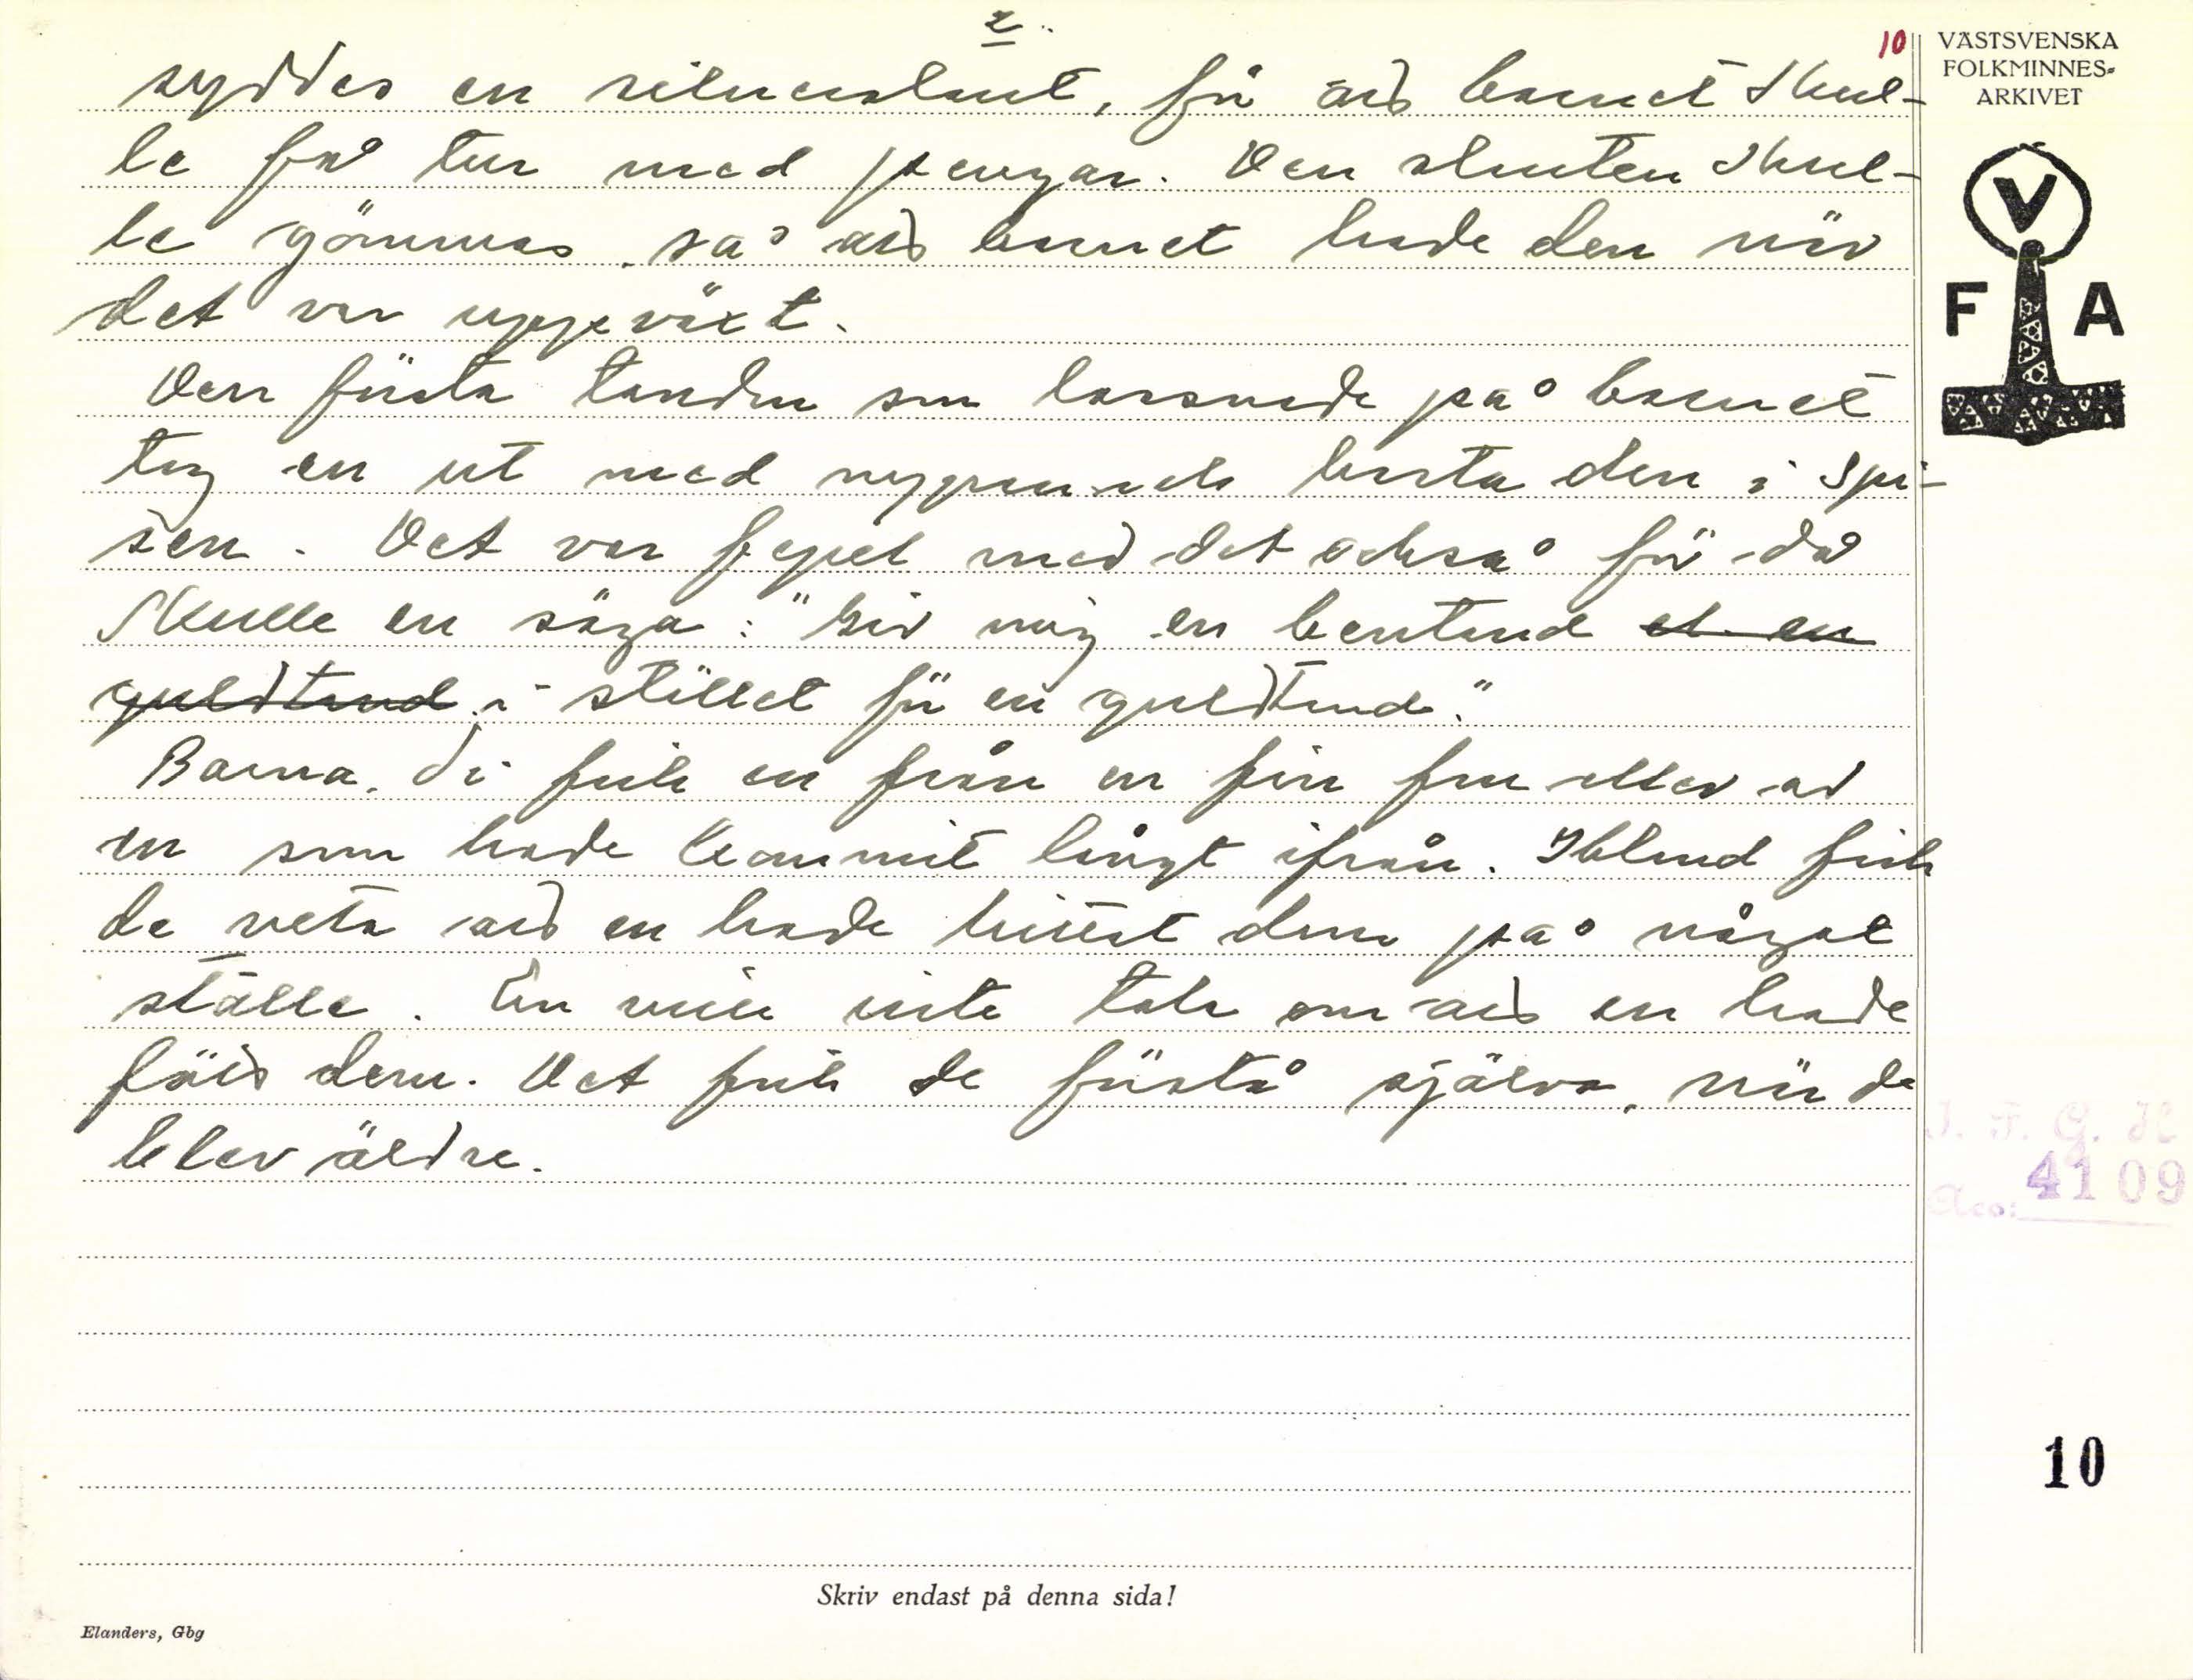 2.
10
syddes en silverslant, för att barnet skul-
le få tur med pengar. Den slanten skul-
le gömmas, så att barnet hade den när
det var uppväxt.
Den första tanden som lossnade på barnet
tog en ut med kasta den i spi-
sen. Det var fepel med det också för då
skulle en säga: "Giv mig en bentand et en
guldtand i stället för en guldtand."
Barna, di fick en från en fin fru eller av
en som hade kommit långt ifrån. Ibland fick
de veta att en hade hittat dem på något
ställe. En ville inte tala om att en hade
fött dem. Det fick de förstå själva, när de
blev äldre.
VÄSTSVENSKA
FOLKMINNES-
ARKIVET
V
F A
I. F. G. H
Acc: 4109
10
Skriv endast på denna sida!
Elanders, Gbg